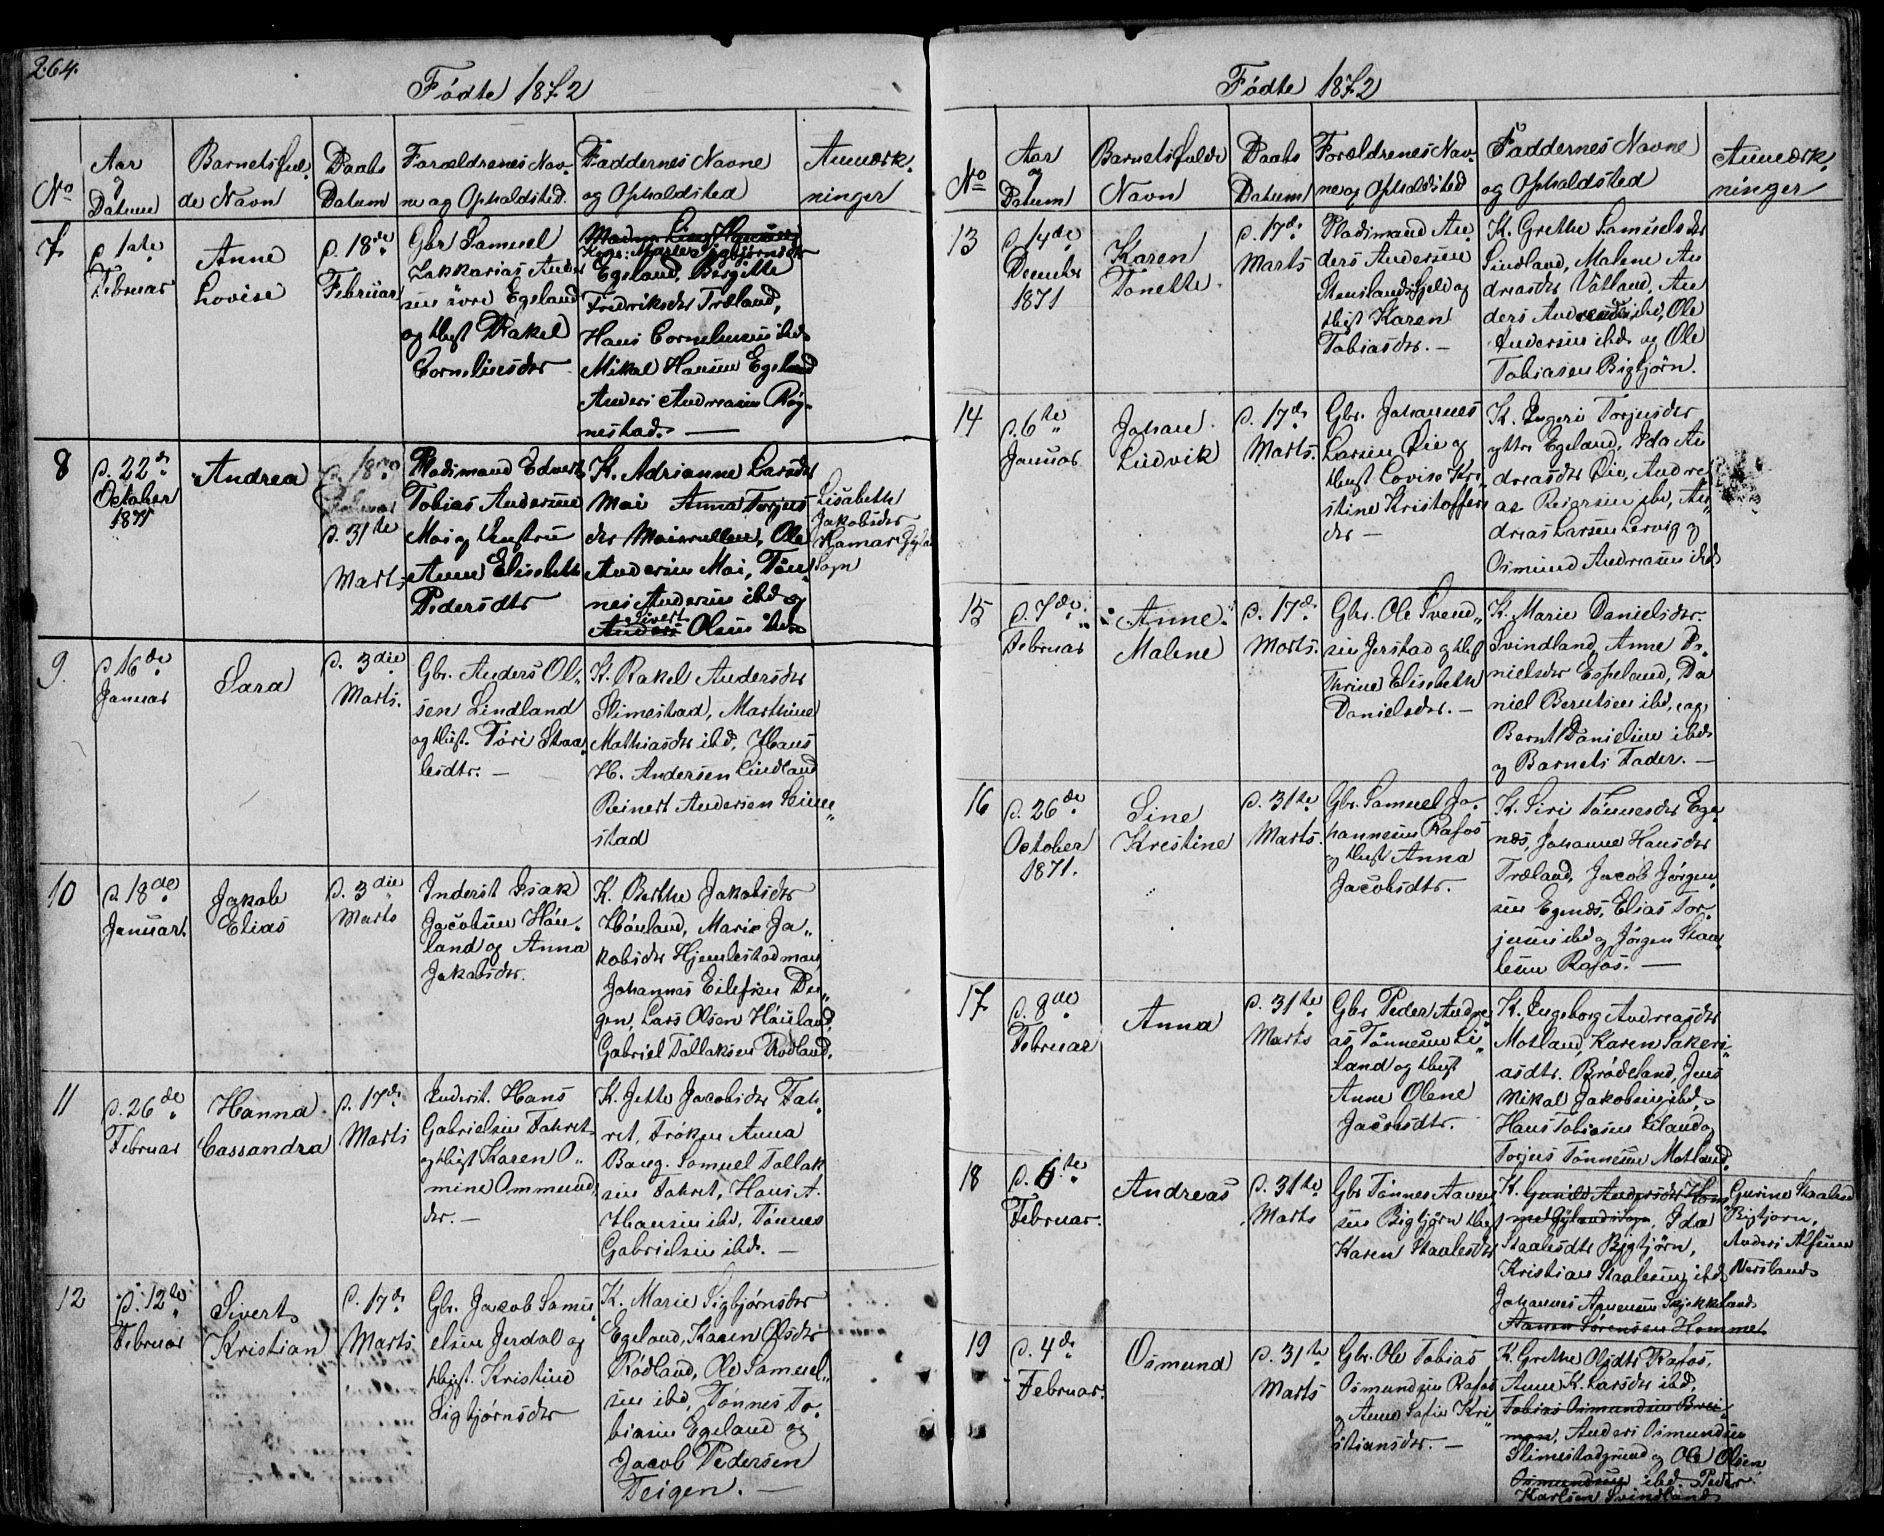 264.
Födte 1872
No
Aar
og
Datum
Barnets ful-
de Navn
Daabs
Datum
Forældrenes Nav-
ne og Opholdsted.
Faddernes Navne
og Opholdsted
Anmærk-
ninger
7
d. 1ste
Februar
Anne
Lovise
d. 18de
Februar
Gbr Samuel
Zakkarias Ander
sen övre Egeland
og Hust Rakel
Corneliusdtr
Kone: Marie Sigbjörnsdtr
Egeland, Birgitte
Fredriksdtr Træland,
Hans Corneliusen ibd
Mikal Hansen Egeland
Anders Andreasen Røg-
nestad. —
8
d. 22de
October
1871
Andrea
d. 18de
Februar
d. 31te
Marts
Pladsmand Edvert
Tobias Andersen
Moi og Hustru
Anne Elisabeth
Pedersdtr
K. Adrianne Larsdtr
Moi Anna Torjus
dtr Moisvullen, Ole
Andersen Moi, Tön-
nes Andersen ibd og
Sivert
Anders Olsen ibd
Lisabeth
Jakobsdtr
Hamar
Sogn
9.
d. 16de
Januar
Sara
d. 3die
Marts.
Gbr. Anders Ol-
sen Lindland
og Hust. Töri Staa-
lesdtr. —
K. Rakel Andersdtr
Slimestad, Marthine
Mathiasdtr ibd, Hans
H. Andersen Lindland
Reinert Andersen Slime-
stad
10
d. 18de
Januar.
Jakob
Elias
d. 3die
Marts
Inderst Isak
Jacobsen Hau-
land og Anna
Jakobsdtr.
K. Berthe Jakobsdtr
Hauland, Marie Ja-
kobsdtr Hjemlestadmoen
Johannes Eilefsen Dei-
gen, Lars Olsen Hauland
Gabriel Tallaksen Rødland.
11
d. 26de
Februar
Hanna
Cassandra
d. 17de
Marts
Inderst. Hans
Gabrielsen Fahret
og Hust Karen O-
mine Ommunds
dtr. —
K. Jette Jacobsdtr Fah-
ret, Fröken Anna
Bang. Samuel Tallak
sen Fahret, Hans A.
Hansen ibd, Tönnes
Gabrielsen ibd. —
12
d. 12te
Februar
Sivert
Kristian
d. 17de
Marts
Gbr. Jakob Samu
elsen Jerdal og
Hust. Kristine
Sigbjørnsdtr
K. Marie Sigbjørnsdtr
Egeland, Karen Olsdtr
Rödland, Ole Samuel-
sen ibd, Tönnes To-
biasen Egeland og
Jacob Pedersen
Teigen. —
Födte 1872
No
Aar
og
Datum
Barnets fulde
Navn
Daabs
Datum
Forældrenes Nav-
ne og Opholdsted
Faddernes Navne
og Opholdsted
Anmærk-
ninger
13
d. 14de
December
1871
Karen
Tonette.
d. 17de
Marts
Pladsmand An-
ders Andersen
Stenslandsfjeld og
Hust Karen
Tobiasdtr. —
K. Grethe Samuelsdtr
Sindland, Malene An
dreasdtr Vatland, An
ders Andersen ibd, Ole
Andersen ibd og Ole
Tobiasen Bigtjörn.
14
d. 6te
Januar
Johan
Ludvik
d. 17de
Marts.
Gbr. Johannes
Larsen Lie og
Hust Lovise Kri
stine Kristoffers
dtr —
K. Ingeri Torjusdtr
yttre Egeland, Ida An
dreasdtr Lie, Andre
as Reiersen ibd, An-
dreas Larsen Lervig og
Osmund Andreasen ibd
15
d. 7de
Februar
Anne
Malene
d. 17de
Marts.
Gbr. Ole Svend-
sen Jerstad og Hust
Thrine Elisabeth
Danielsdtr. —
K. Marie Danielsdtr.
Svindland, Anne Da-
nielsdtr Espeland, Da
niel Berntsen ibd, og
Bernt Danielsen ibd
og Barnets Fader. —
16
d. 26de
October
1871.
Sine
Kristine
d. 31te
Marts.
Gbr. Samuel Jo-
hannesen Rafos
og Hust Anna
Jacobsdtr.
K. Siri Tönnesdtr Ege-
næs, Johanne Hansdtr
Træland, Jacob Jörgen-
sen Egenæs, Elias Tor-
jusen ibd og Jörgen Staa-
lesen Rafos. —
17
d. 8de
Februar
Anna
d. 31te
Marts
Gbr Peder Andre-
as Tönnesen Li-
land og Hust
Anne Olene
Jacobsdtr.
K. Ingeborg Andreasdtr
Motland, Karen Sakeri-
asdtr. Brödeland, Jens
Mikal Jakobsen ibd,
Hans Tobiasen Liland og
Torjus Tönnesen Motland.
18
d. 6te
Februar.
Andreas
d. 31te
Marts
Gbr Tönnes Aanen
sen Bigtjörn Hust
Karen Staalesdtr
K. Gunild Andersdtr Hom
met Gylands Sogn, Ida
Staalesdtr Bigtjörn,
Kristian Staalesen ibd
Johannes Aanensen Skjekkeland
Aanen Sörensen Hommet
Gurine Staalesd
Bigtjörn,
Anders Alfsen
Nersland
19
d. 4de
Februar.
Osmund
d. 31te
Marts
Gbr. Ole Tobias
Osmundsen Rafos
og Anne Sofie Kri
stiansdtr. —
K. Grethe Olsdtr Rafos,
Anne K. Larsdtr ibd,
Tobias Osmundsen Brei-
moen, Anders Osmundsen
Slimestadgrund og Ole Olsen
Osmundsen ibd Peder
Karlsen Svindland